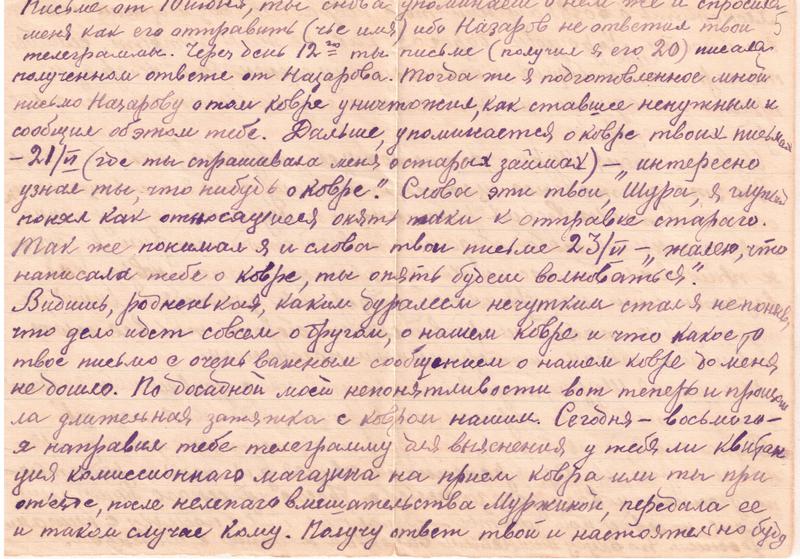 письме от 10 июня, ты снова упоминаешь о нем же и спросила 5
меня как его отправить (чье имя) ибо Назаров не ответил твои
телеграммы. Через день 12го ты письме (получил я его 20) писала
полученном ответе от Назарова. Тогда же я подготовленное мной
письмо Назарову о том ковре уничтожил, как ставшее ненужным и
сообщил об этом тебе. Дальше, упоминается о ковре твоих письмах
– 21/VI (где ты спрашивала меня о старых займах) – „интересно
узнал ты, что нибудь о ковре". Слова эти твои, Шура, я глупый
понял как относящиеся опять таки к отправке стараго.
Так же понимал я и слова твои письме 23/VI – „жалею, что
написала тебе о ковре, ты опять будеш волноваться".
Видишь, родненькая, каким дуралеем нечутким стал я не понял,
что дело идет совсем о другом, о нашем ковре и что какое то
твое письмо с очень важным сообщением о нашем ковре до меня
не дошло. По досадной моей непонятливости вот теперь и произош
ла длительная затяжка с ковром нашим. Сегодня – восьмого –
я направил тебе телеграмму для выяснения у тебя ли квитан-
ция комиссионнаго магазина на прием ковра или ты при
от'езде, после нелепаго вмешательства Муржиной, передала ее
и таком случае кому. Получу ответ твой и настоятельно буду